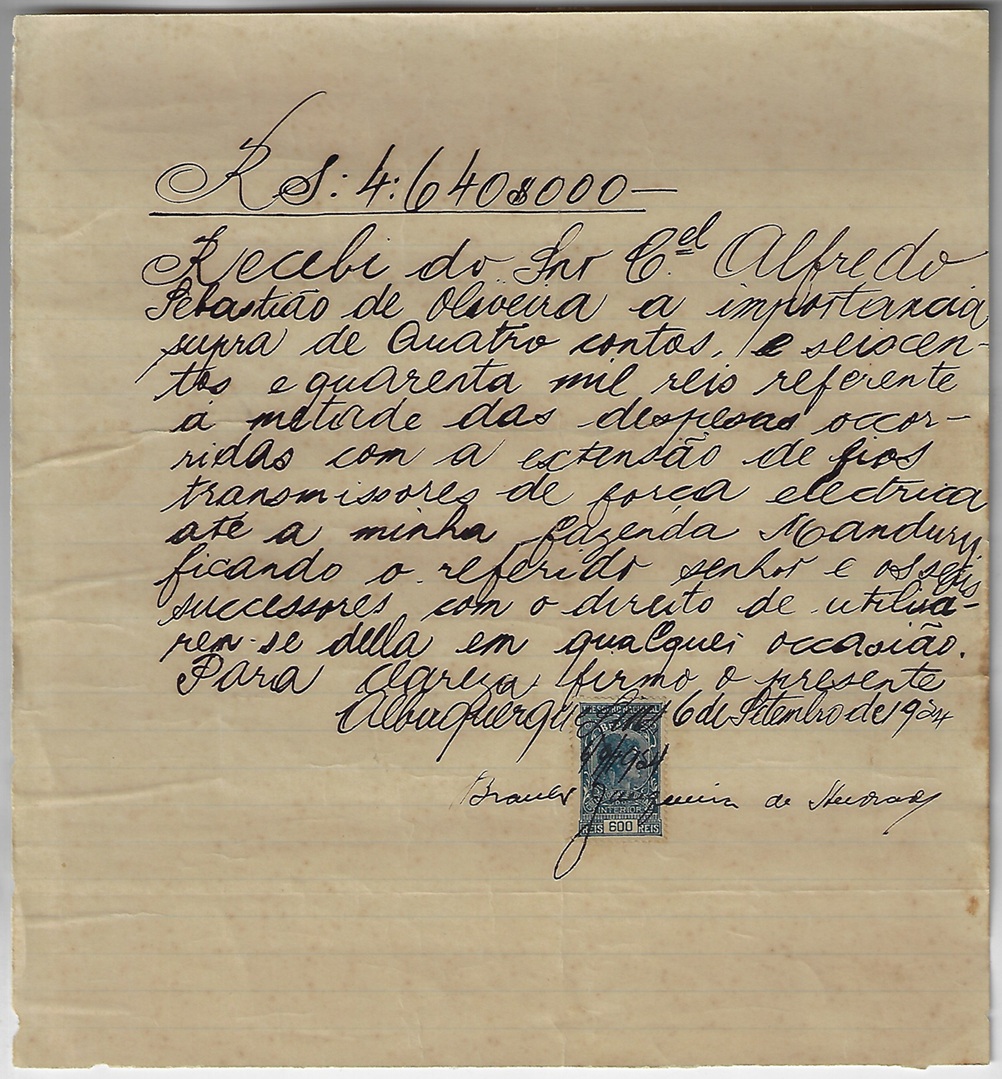 RS: 4:640$000—
Recebi do Snr Cel Alfredo
Sebastião de Oliveira a importancia
supra de Quatro contos, e seiscen-
tos e quarenta mil reis referente
á metade das despesas occor-
ridas com a extensão de fios
transmissores de força electrica
até a minha fazenda Mandury,
ficando o referido senhor e os seus
successores com o direito de utilisa-
rem-se della em qualquer occasião.
Para clareza firmo o presente
Albuquerque Lins 6 de Setembro de 1924
THESOURO NACIONAL
BRASIL
Junqueira de Andrade
INTERIOR
REIS 600 REIS